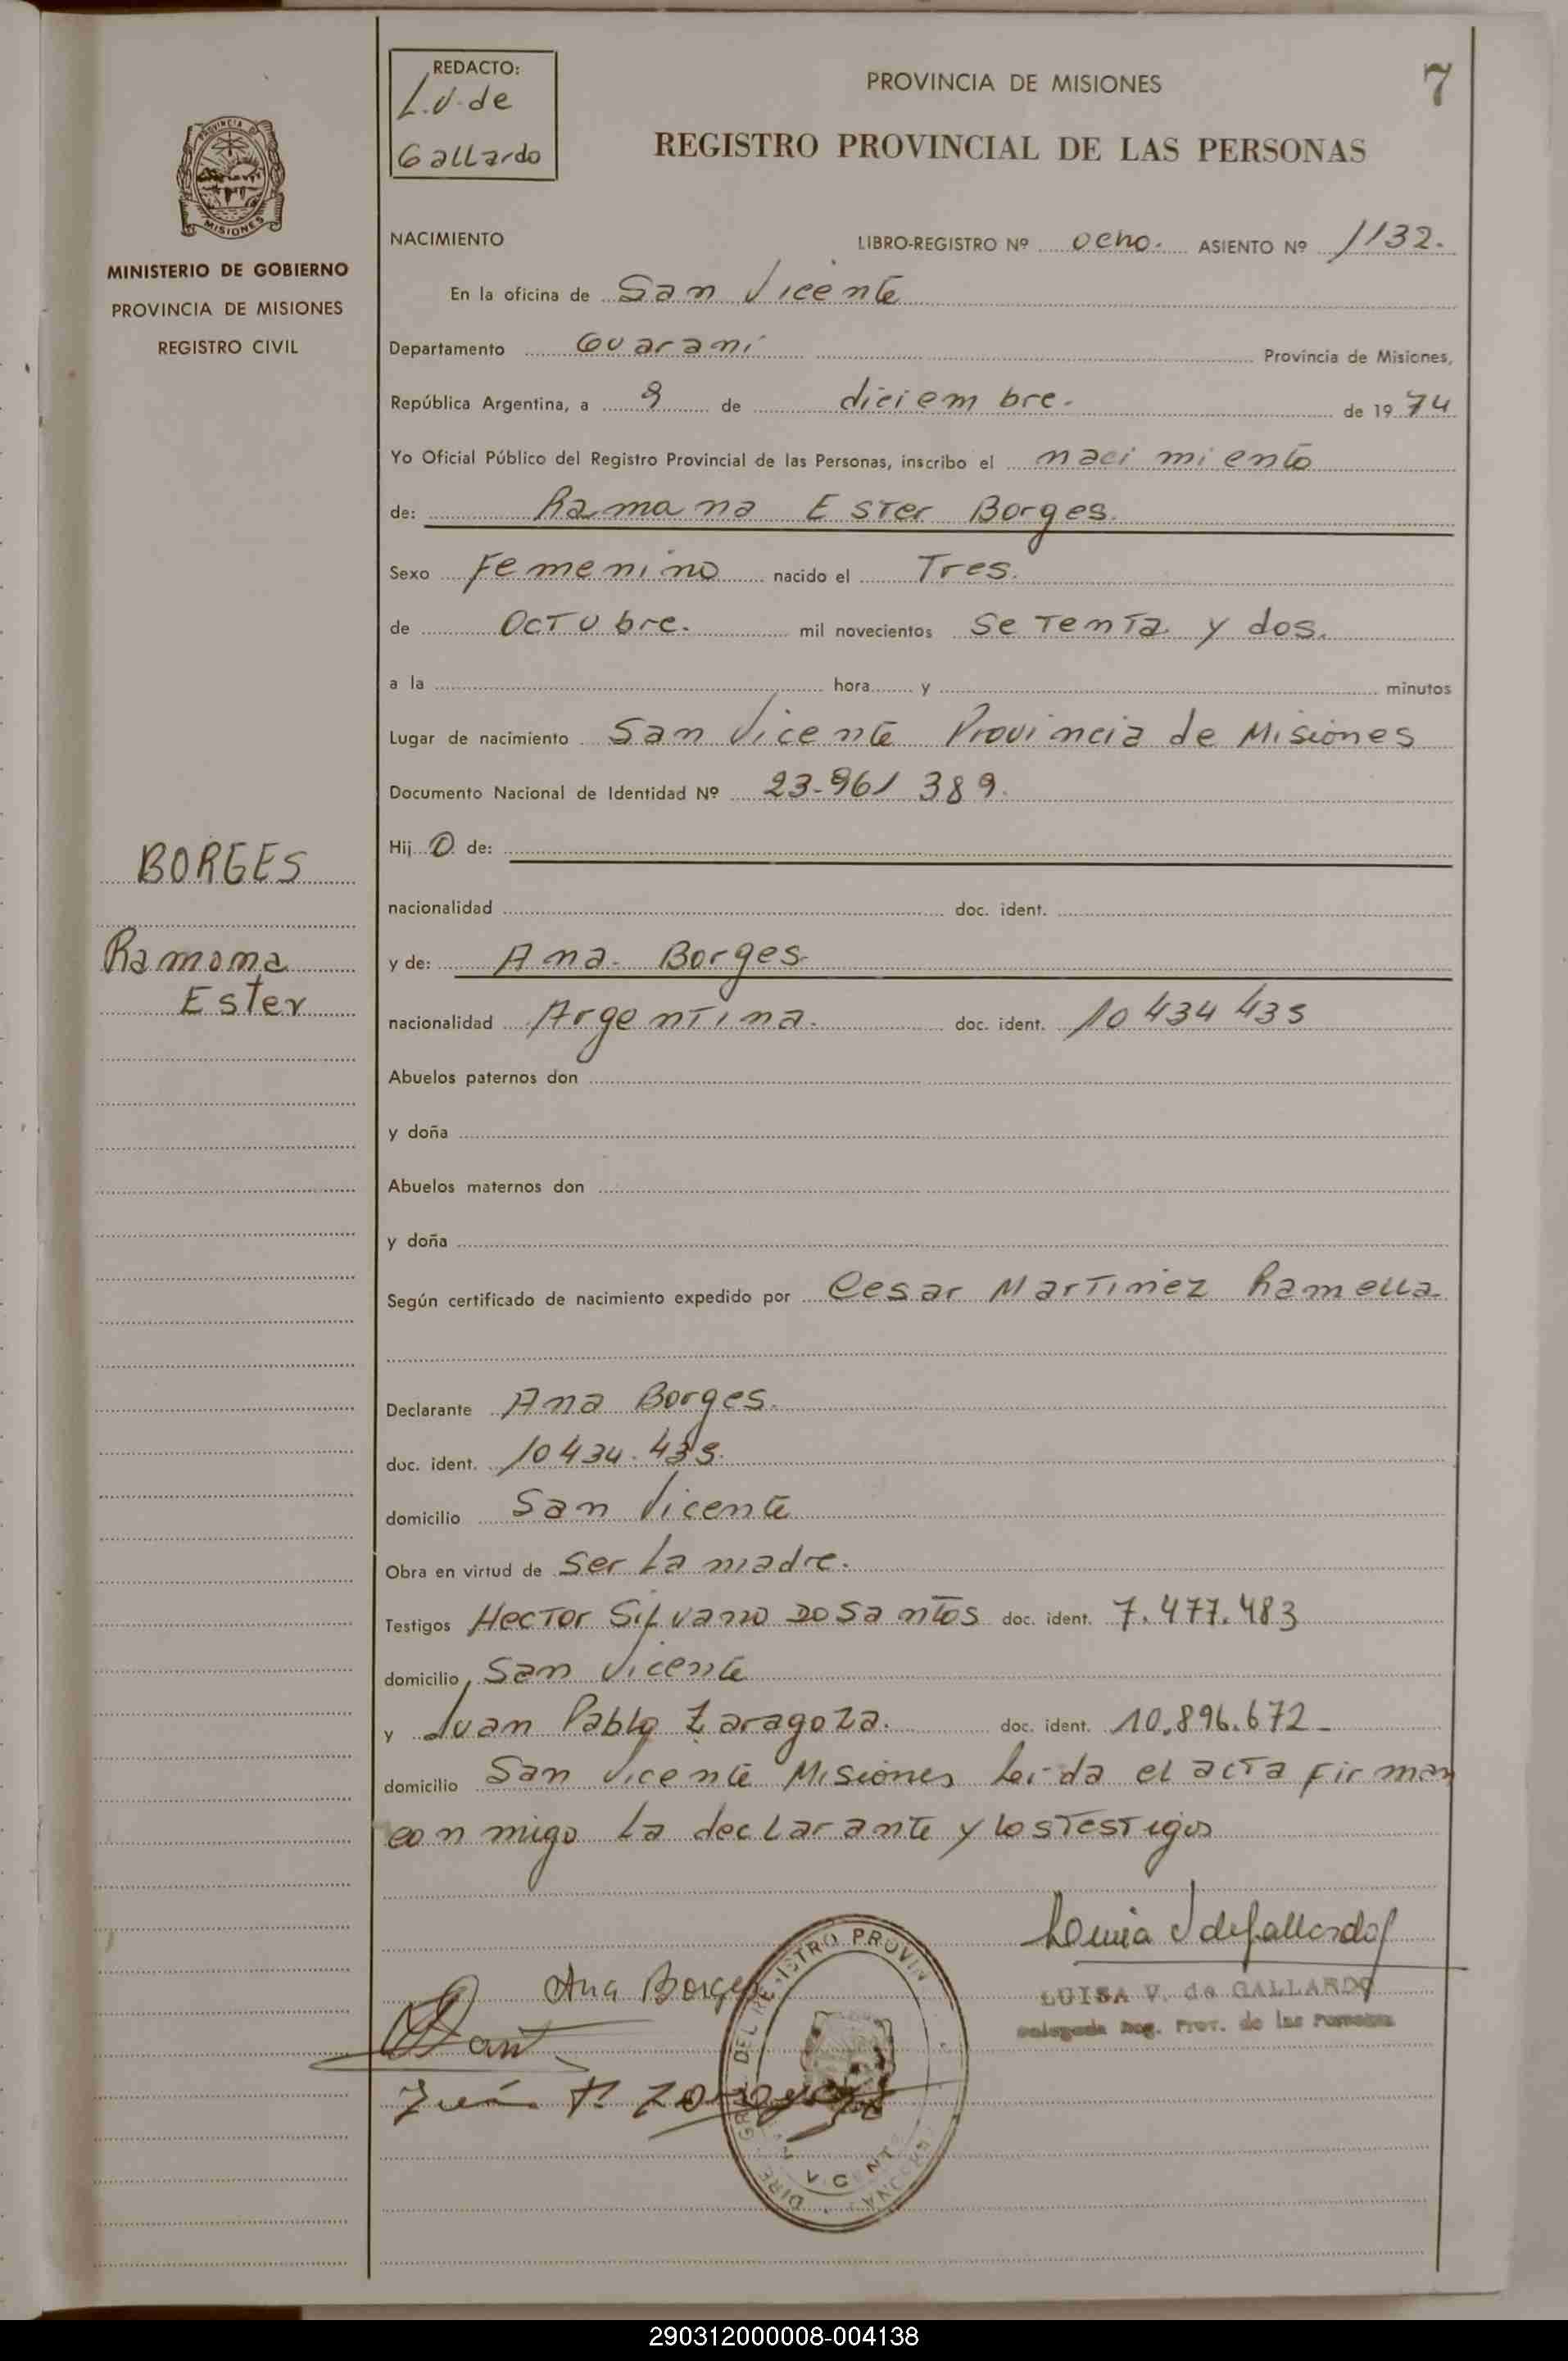 REDACTO:
L.V. de
Gallardo
PROVINCIA DE MISIONES
7
REGISTRO PROVINCIAL DE LAS PERSONAS
PROVINCIA DE
MISIONES
MINISTERIO DE GOBIERNO
PROVINCIA DE MISIONES
REGISTRO CIVIL
NACIMIENTO LIBRO-REGISTRO Nº ocho. ASIENTO Nº 1132.
En la oficina de San Vicente
Departamento Guaraní Provincia de Misiones,
República Argentina, a 9 de diciembre. de 1974
Yo Oficial Público del Registro Provincial de las Personas, inscribo el nacimiento
de: Ramona Ester Borges.
Sexo Femenino nacido el Tres.
de Octubre. mil novecientos Setenta y dos.
a la hora y minutos
Lugar de nacimiento San Vicente Provincia de Misiones
Documento Nacional de Identidad Nº 23.961 389.
BORGES
Ramona
Ester
Hij o de:
nacionalidad doc. ident.
y de: Ana. Borges.
nacionalidad Argentina. doc. ident. 10 434 435
Abuelos paternos don
y doña
Abuelos maternos don
y doña
Según certificado de nacimiento expedido por Cesar Martinez Ramella
Declarante Ana Borges.
doc. ident. 10 434.435.
domicilio San Vicente
Obra en virtud de Ser la madre.
Testigos Hector Silvano Dosantos doc. ident. 7.477.483
domicilio San Vicente
y Juan Pablo Zaragoza. doc. ident. 10.896.672
domicilio San Vicente Misiones leida el acta firman
conmigo la declarante y los testigos
Ana Borges
LUISA V. de GALLARDO
Delegada Reg. Prov. de las Personas
Juan P. Zaragoza
290312000008-004138